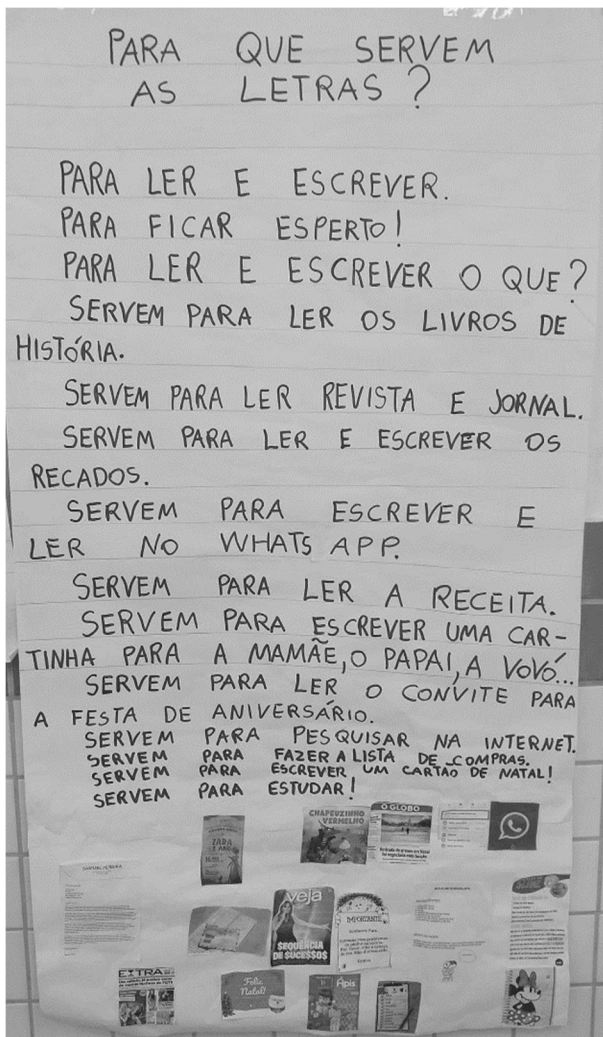 PARA QUE SERVEM
AS LETRAS?
PARA LER E ESCREVER.
PARA FICAR ESPERTO!
PARA LER E ESCREVER O QUE?
SERVEM PARA LER OS LIVROS DE
HISTÓRIA.
SERVEM PARA LER REVISTA E JORNAL.
SERVEM PARA LER E ESCREVER OS
RECADOS.
SERVEM PARA ESCREVER E
LER NO WHATS APP.
SERVEM PARA LER A RECEITA.
SERVEM PARA ESCREVER UMA CAR-
TINHA PARA A MAMÃE, O PAPAI, A VOVÓ...
SERVEM PARA LER O CONVITE PARA
A FESTA DE ANIVERSÁRIO.
SERVEM PARA PESQUISAR NA INTERNET.
SERVEM PARA FAZER A LISTA DE COMPRAS.
SERVEM PARA ESCREVER UM CARTÃO DE NATAL!
SERVEM PARA ESTUDAR!
CHAPEUZINHO
VERMELHO
O GLOBO
veja
SEQUÊNCIA
DE SUCESSOS
IMPORTANTE
EXTRA
Feliz
Natal!